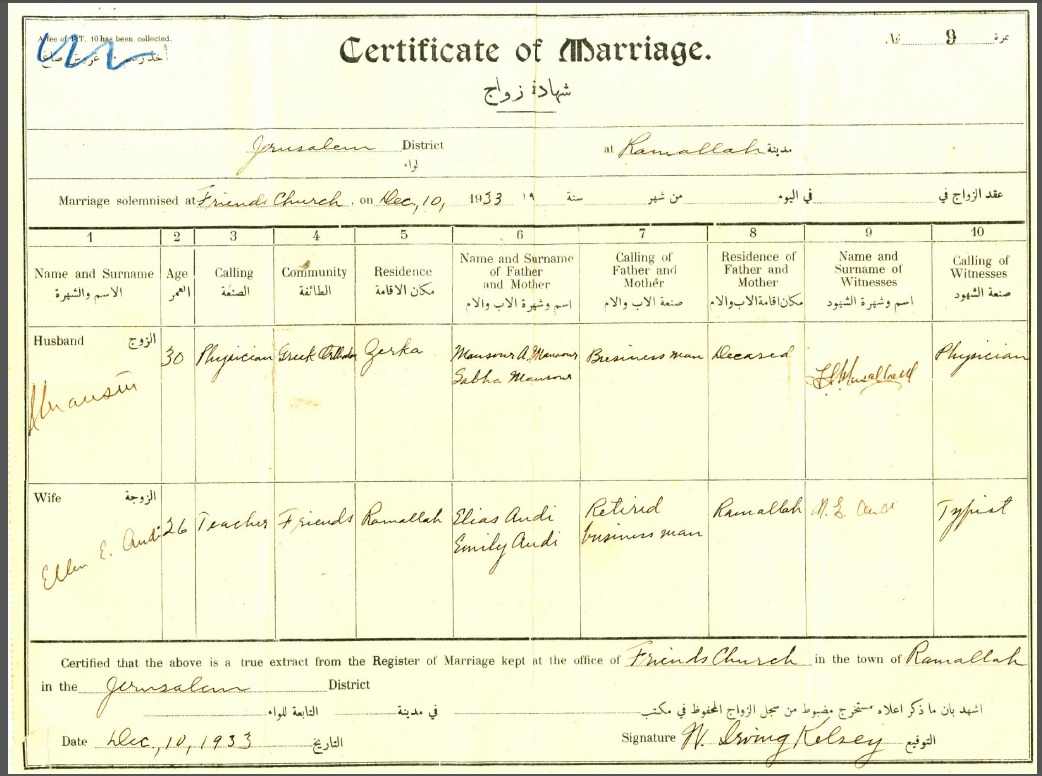 A fee of P.T. 10 has been collected.
№ 9 نمرة
Certificate of Marriage.
شهادة زواج
Jerusalem District at Ramallah مدينة
لواء
Marriage solemnised at Friends Church, on Dec, 10, 1933 ١٩ سنة من شهر في اليوم عقد الزواج في
1 2 3 4 5 6 7 8 9 10
Name and Surname Age Calling Community Residence Name and Surname of Father and Mother Calling of Father and Mother Residence of Father and Mother Name and Surname of Witnesses Calling of Witnesses
الاسم والشهرة العمر الصنعة الطائفة مكان الاقامة اسم وشهرة الاب والام صنعة الاب والام مكان اقامة الاب والام اسم وشهرة الشهود صنعة الشهود
Husband الزوج
30 Physician Greek Orthdox Zerka Mansour A. Mansour Business man Deceased Physician
Sabha Mansour
Wife الزوجة
Ellen E. Audi 26 Teacher Friends Ramallah Elias Audi Retired Ramallah Audi Typist
Emily Audi business man
Certified that the above is a true extract from the Register of Marriage kept at the office of Friends Church in the town of Ramallah
in the Jerusalem District
اشهد بان ما ذكر اعلاه مستخرج مضبوط من سجل الزواج المحفوظ في مكتب في مدينة التابعة للواء
Date Dec, 10, 1933 التاريخ Signature W. Irving Kelsey التوقيع